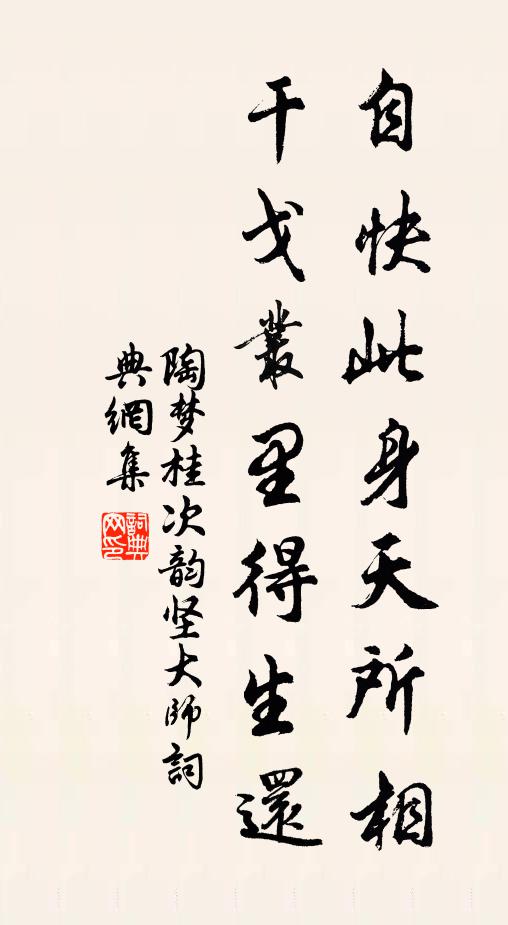 自快此身天所相
干戈叢里得生還
陶梦桂次韵坚大师詞
典網集
詞典
网印